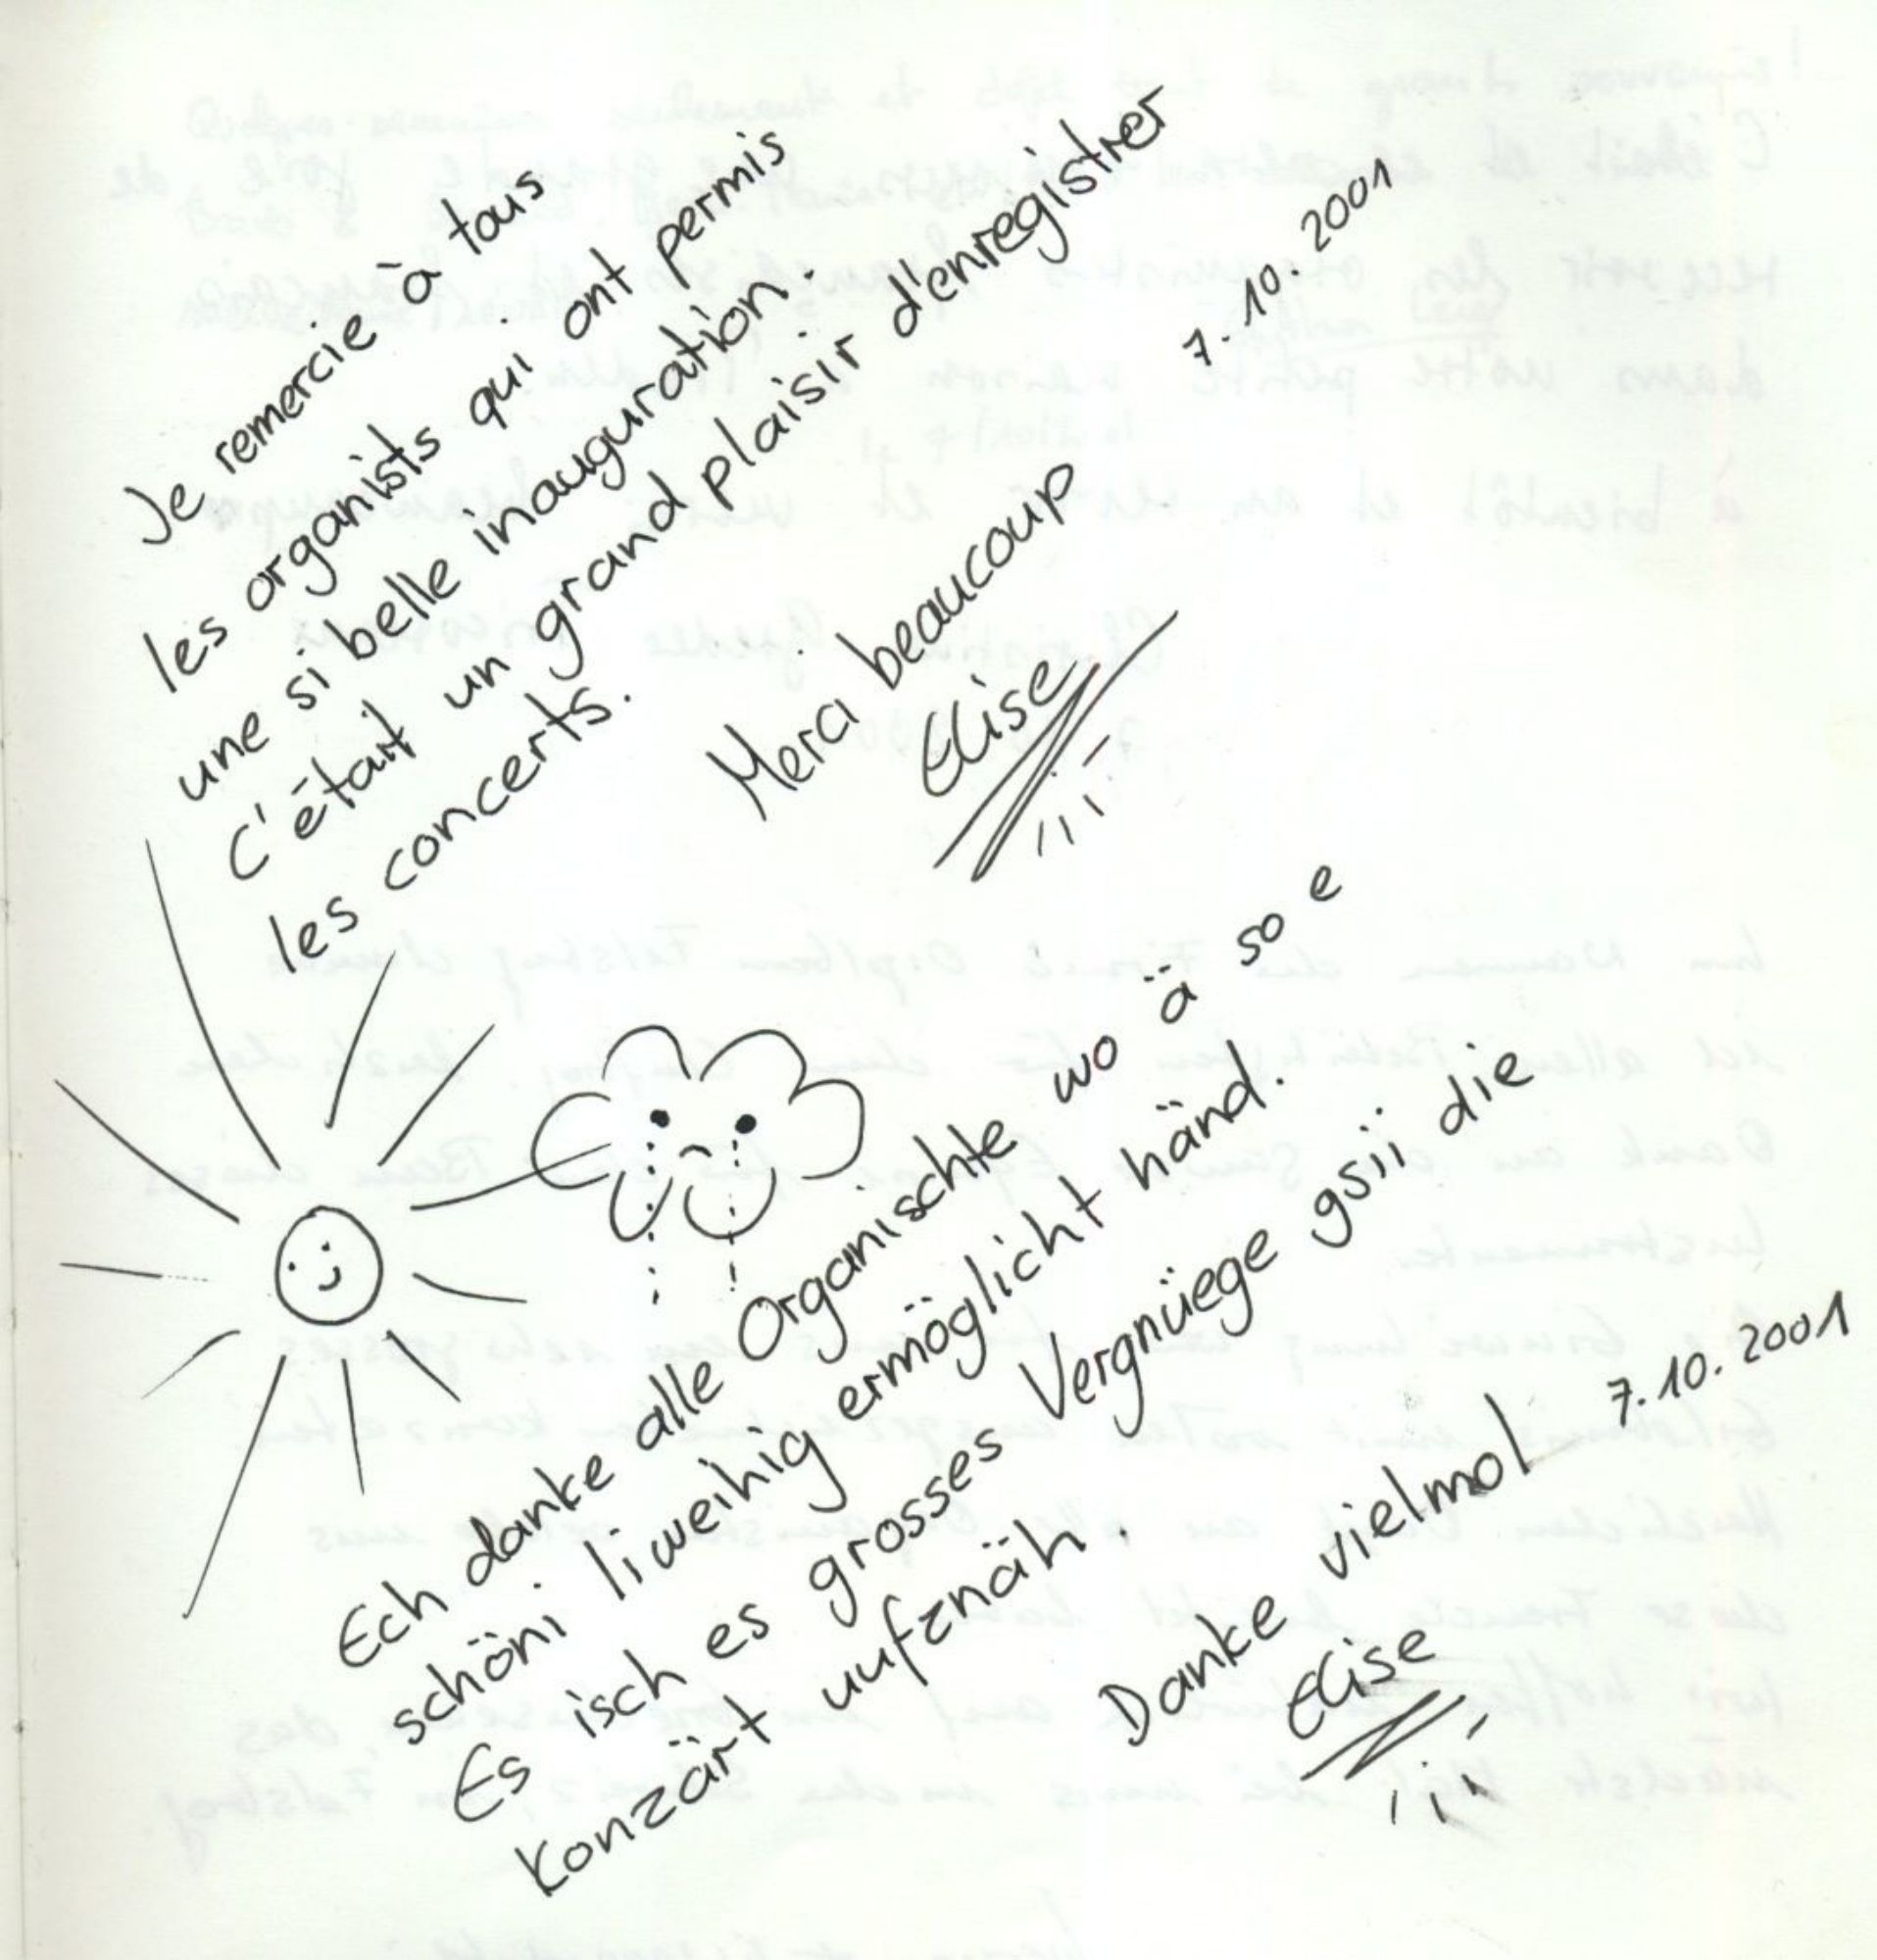 Je remercie à tous
les organists qui ont permis
une si belle inauguration.
C'était un grand plaisir d'enregistrer
les concerts.
7.10.2001
Merci beaucoup
Elise
Ech danke alle Organischte wo ä so e
schöni Iiweihig ermöglicht händ.
Es isch es grosses Vergnüege gsii die
Konzärt uufznäh.
7.10.2001
Danke vielmol
Elise